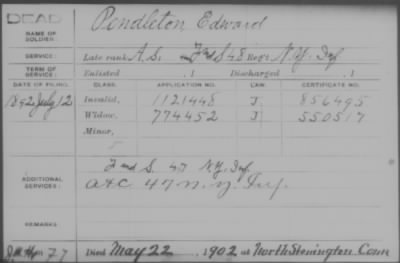 DEAD
NAME OF SOLDIER:
Pendleton Edward
SERVICE:
Late rank A. S. F and S 48 Reg't N.Y. Inf
TERM OF SERVICE:
Enlisted , 1 Discharged , 1
DATE OF FILING. CLASS. APPLICATION NO. LAW. CERTIFICATE NO.
1892 July 12 Invalid, 1121448 J 856495
Widow, 774452 J 550517
Minor,
ADDITIONAL SERVICES:
F and S. 47 N.Y. Inf.
47 N.Y. Inf.
REMARKS:
77 Died May 22 1902 at North Stonington Conn